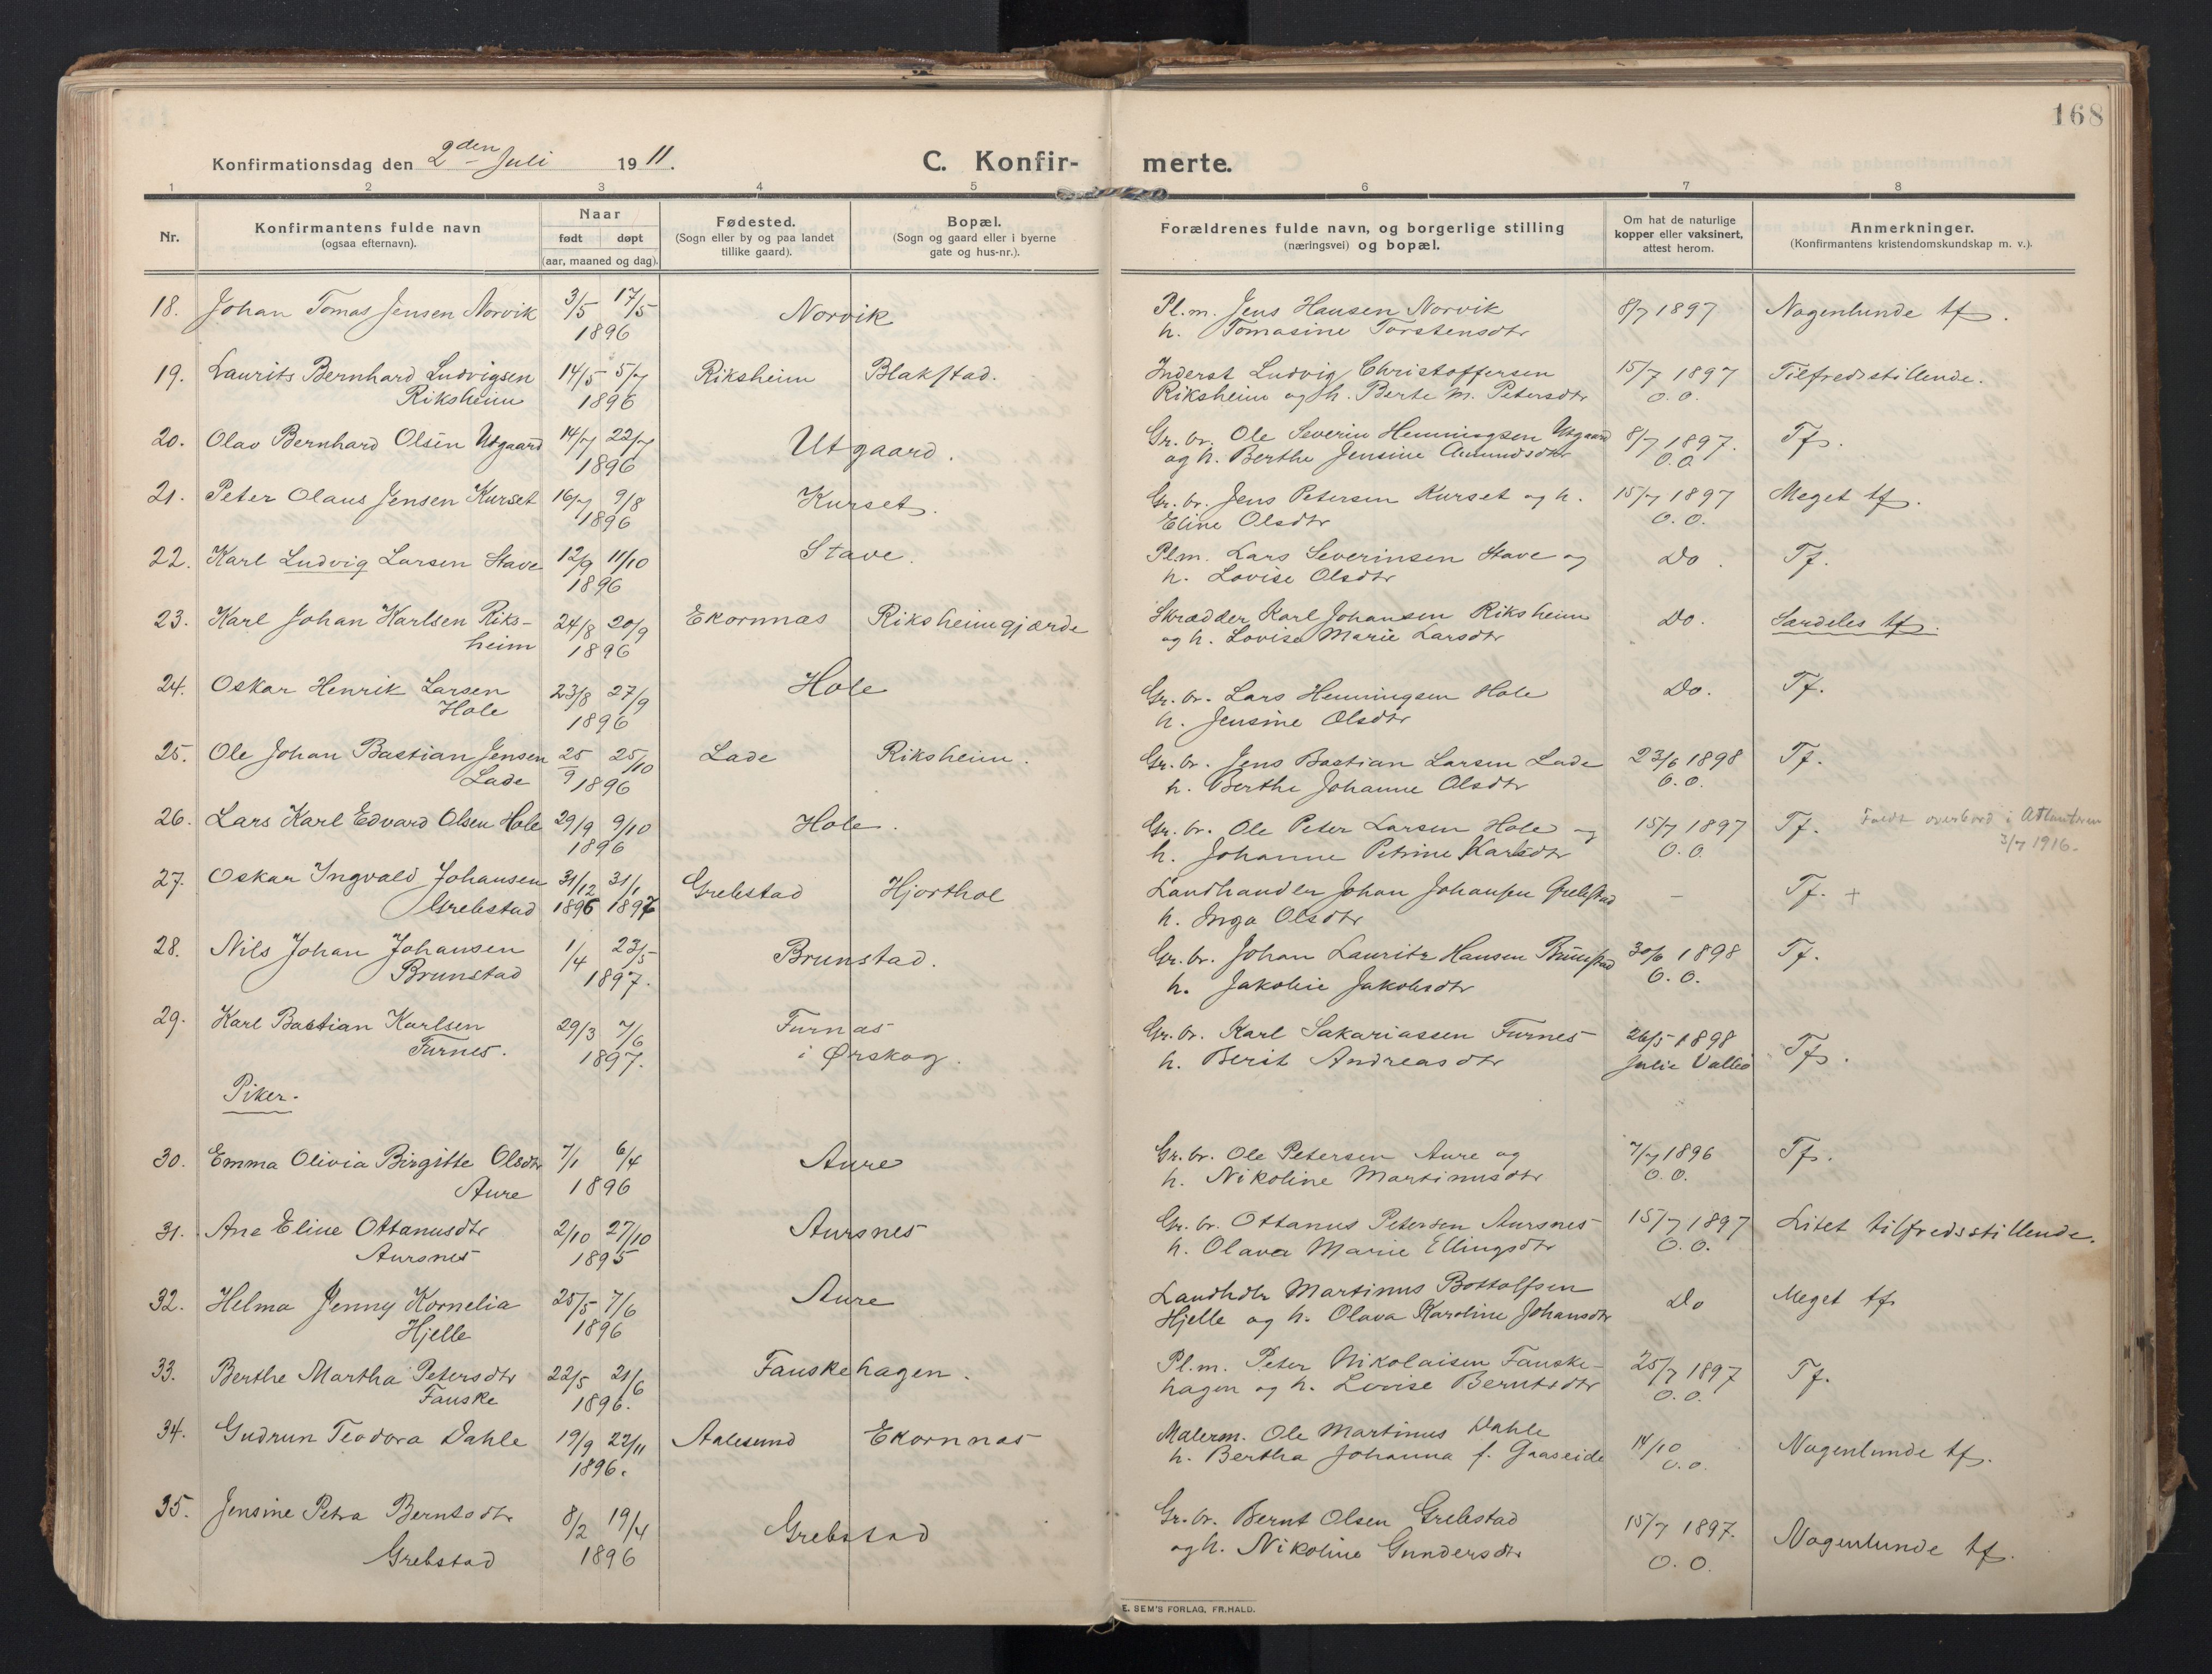 168
Konfirmationsdag den 2den Juli 1911.
C. Konfir-
merte.
1 2 3 4 5 6 7 8
Nr.
Konfirmantens fulde navn
(ogsaa efternavn).
Naar
født døpt
(aar, maaned og dag).
Fødested.
(Sogn eller by og paa landet
tillike gaard).
Bopæl.
(Sogn og gaard eller i byerne
gate og hus-nr.).
Forældrenes fulde navn, og borgerlige stilling
(næringsvei) og bopæl.
Om hat de naturlige
kopper eller vaksinert,
attest herom.
Anmerkninger.
(Konfirmantens kristendomskundskap m. v.).
18. Johan Tomas Jensen Norvik 3/5 17/5 Norvik Pl.m. Jens Hansen Norvik 8/7 1897 Nogenlunde tf.
1896 h. Tomasine Torstensdtr
19. Laurits Bernhard Ludvigsen 14/5 5/7 Riksheim Blakstad. Inderst Ludvig Christoffersen 15/7 1897 Tilfredsstillende.
Riksheim 1896 Riksheim og h. Berte M. Petersdtr O.O.
20. Olav Bernhard Olsen Utgaard 14/7 22/7 Utgaard. Gr. br. Ole Severin Henningsen Utgaard 8/7 1897. Tf.
1896 og h. Berthe Jensine Amundsdtr O.O
21. Peter Olaus Jensen Kurset 16/7 9/8 Kurset. Gr. br. Jens Petersen Kurset og h. 15/7 1897 Meget tf.
1896 Eline Olsdtr O.O.
22. Karl Ludvig Larsen Stave 12/9 11/10 Stave. Plm. Lars Severinsen Stave og Do. Tf.
1896 h. Lovise Olsdtr
23. Karl Johan Karlsen Riks- 24/8 20/9 Ekornnæs Riksheimgjærde Skrædder Karl Johansen Riksheim Do. Særdeles tf.
heim 1896 og h. Lovise Marie Larsdtr
24. Oskar Henrik Larsen 23/8 27/9 Hole Gr. br. Lars Henningsen Hole Do. Tf.
Hole 1896 h. Jensine Olsdtr
25. Ole Johan Bastian Jensen 25/9 25/10 Lade Riksheim. Gr. br. Jens Bastian Larsen Lade 23/6 1898 Tf.
Lade 1896 h. Berthe Johanne Olsdtr O.O.
26. Lars Karl Edvard Olsen Hole 29/9 9/10 Hole. Gr. br. Ole Peter Larsen Hole og 15/7 1897 Tf. Faldt overbord i Atlanteren
1896 h. Johanne Petrine Karlsdtr O.O. 3/7 1916.
27. Oskar Ingvald Johansen 31/12 31/1 Grebstad Hjorthol Landhandler Johan Johansen Grebstad - Tf. +
Grebstad 1896 1897 h. Inga Olsdtr
28. Nils Johan Johansen 1/4 23/5 Brunstad. Gr. br. Johan Lauritz Hansen Brunstad 30/6 1898 Tf.
Brunstad 1897. h. Jakobie Jakobsdtr O.O.
29. Karl Bastian Karlsen 29/3 7/6 Furnas Gr. br. Karl Sakariassen Furnes 26/5 1898 Tf.
Furnes. 1897. i Ørskog. h. Berit Andreasdtr Julie Vallio
Piker.
30. Emma Olivia Birgitte Olsdtr 7/1 6/4 Aure Gr. br. Ole Petersen Aure og 7/7 1896 Tf.
Aure 1896 h. Nikoline Martinusdtr O.O.
31. Ane Eline Ottanusdtr 2/10 27/10 Aursnes Gr. br. Ottanus Petersen Aursnes 15/7 1897 Litet tilfredsstillende.
Aursnes 1895 h. Olava Marie Ellingsdtr O.O.
32. Helma Jenny Kornelia 25/5 7/6 Aure Landhdlr Martinus Bottolfsen Do Meget tf
Hjelle 1896 Hjelle og h. Olava Karoline Johansdtr
33. Berthe Martha Petersdtr 22/5 21/6 Fauskehagen. Pl.m. Peter Nikolaisen Fauske- 25/7 1897 Tf.
Fauske 1896. hagen og h. Lovise Berntsdtr O.O.
34. Gudrun Teodora Dahle 19/9 22/11 Aalesund Ekornnæs Malerm. Ole Martinus Dahle 14/10 Nogenlunde tf.
1896. h. Bertha Johanna f. Gaaseide O.O.
35. Jensine Petra Berntsdtr 8/2 19/4 Grebstad Gr. br. Bernt Olsen Grebstad 15/7 1897. Nogenlunde tf.
Grebstad 1896 og h. Nikoline Gundersdtr O.O.
E. SEM'S FORLAG, FR.HALD.